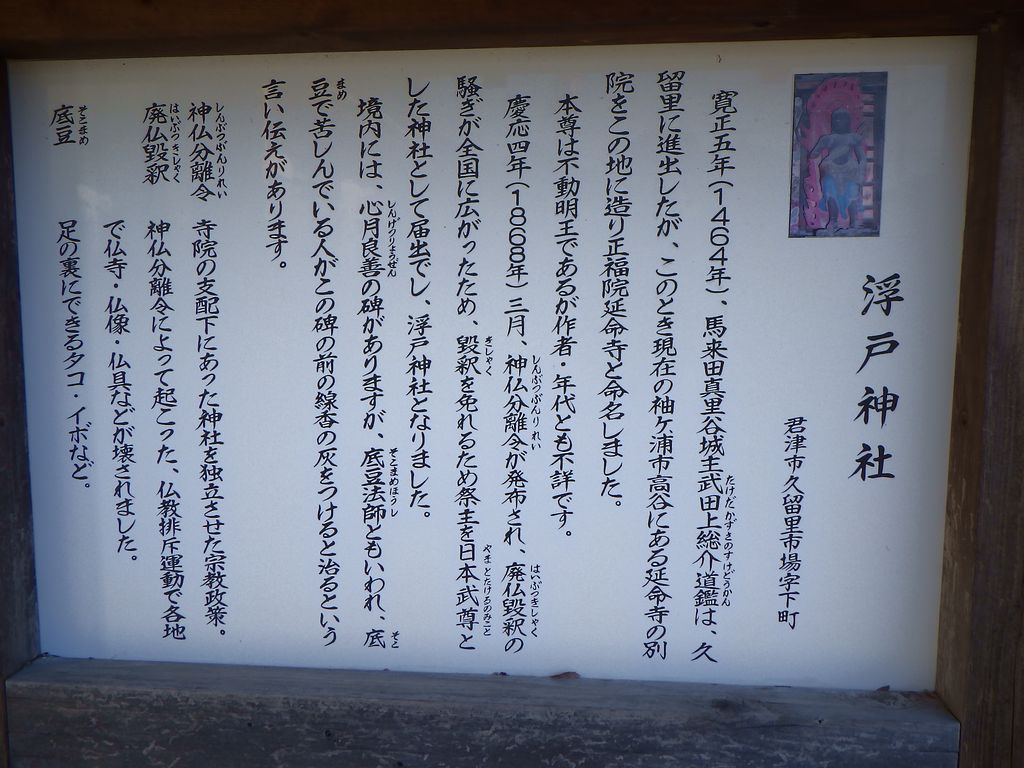 浮戸神社
君津市久留里市場字下町
寛正五年(1464年)、馬来田真里谷城主武田上総介道鑑は、久
留里に進出したが、このとき現在の袖ケ浦市高谷にある延命寺の別
院をこの地に造り正福院延命寺と命名しました。
本尊は不動明王であるが作者・年代とも不詳です。
慶応四年(1868年)三月、神仏分離令が発布され、廃仏毀釈の
騒ぎが全国に広がったため、毀釈を免れるため祭主を日本武尊と
した神社として届出でし、浮戸神社となりました。
境内には、心月良善の碑がありますが、底豆法師ともいわれ、底
豆で苦しんでいる人がこの碑の前の線香の灰をつけると治るという
言い伝えがあります。
神仏分離令 寺院の支配下にあった神社を独立させた宗教政策。
廃仏毀釈 神仏分離令によって起こった、仏教排斥運動で各地
で仏寺・仏像・仏具などが壊されました。
底豆 足の裏にできるタコ・イボなど。